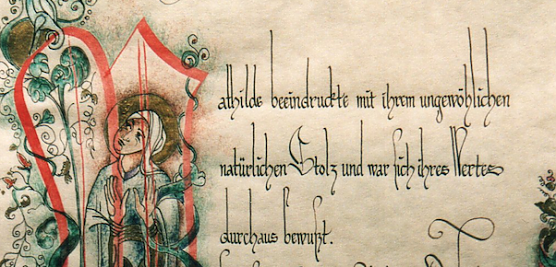 Mathilde beeindruckte mit ihrem ungewöhlichen
natürlichen Stolz und war sich ihres Wertes
durchaus bewußt.